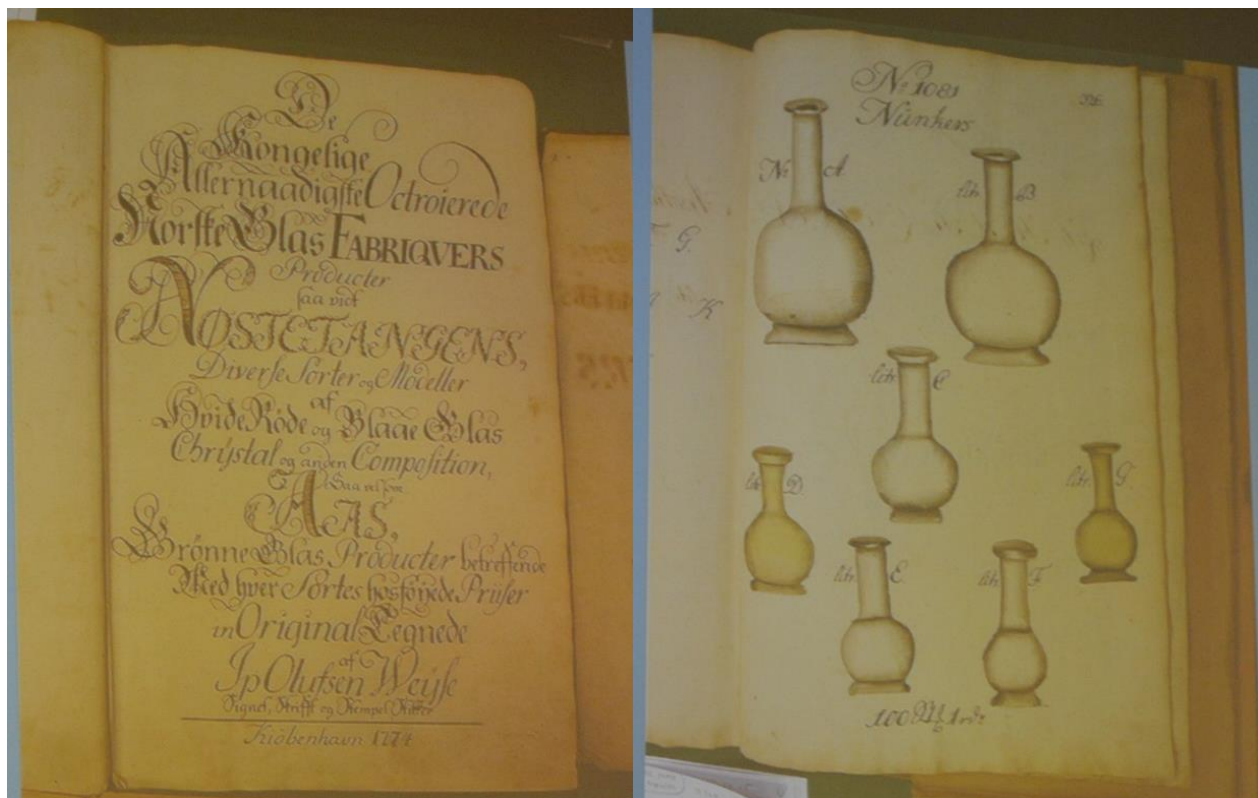 De
Kongelige
Allernaadigste Octroierede
Norske Glas FABRIQVERS
Producter
saa vidt
NØSTETANGENS,
Diverse Sorter og Modeller
af
Hvide Röde og Blaae Glas
Chrÿstal og anden Composition,
Saa vel som
AAS,
Grönne Glas, Producter betreffende
Med hver Sortes hosföyede Prüser
in Original Tegnede
af
Ip Olufsen Weÿse
Signet, Skrifft og Stempel Stikker
Kiöbenhavn 1774
No 1081
Nünkers
No A
litr B
litr C
litr D
litr G
litr E
litr F
100
G.
K